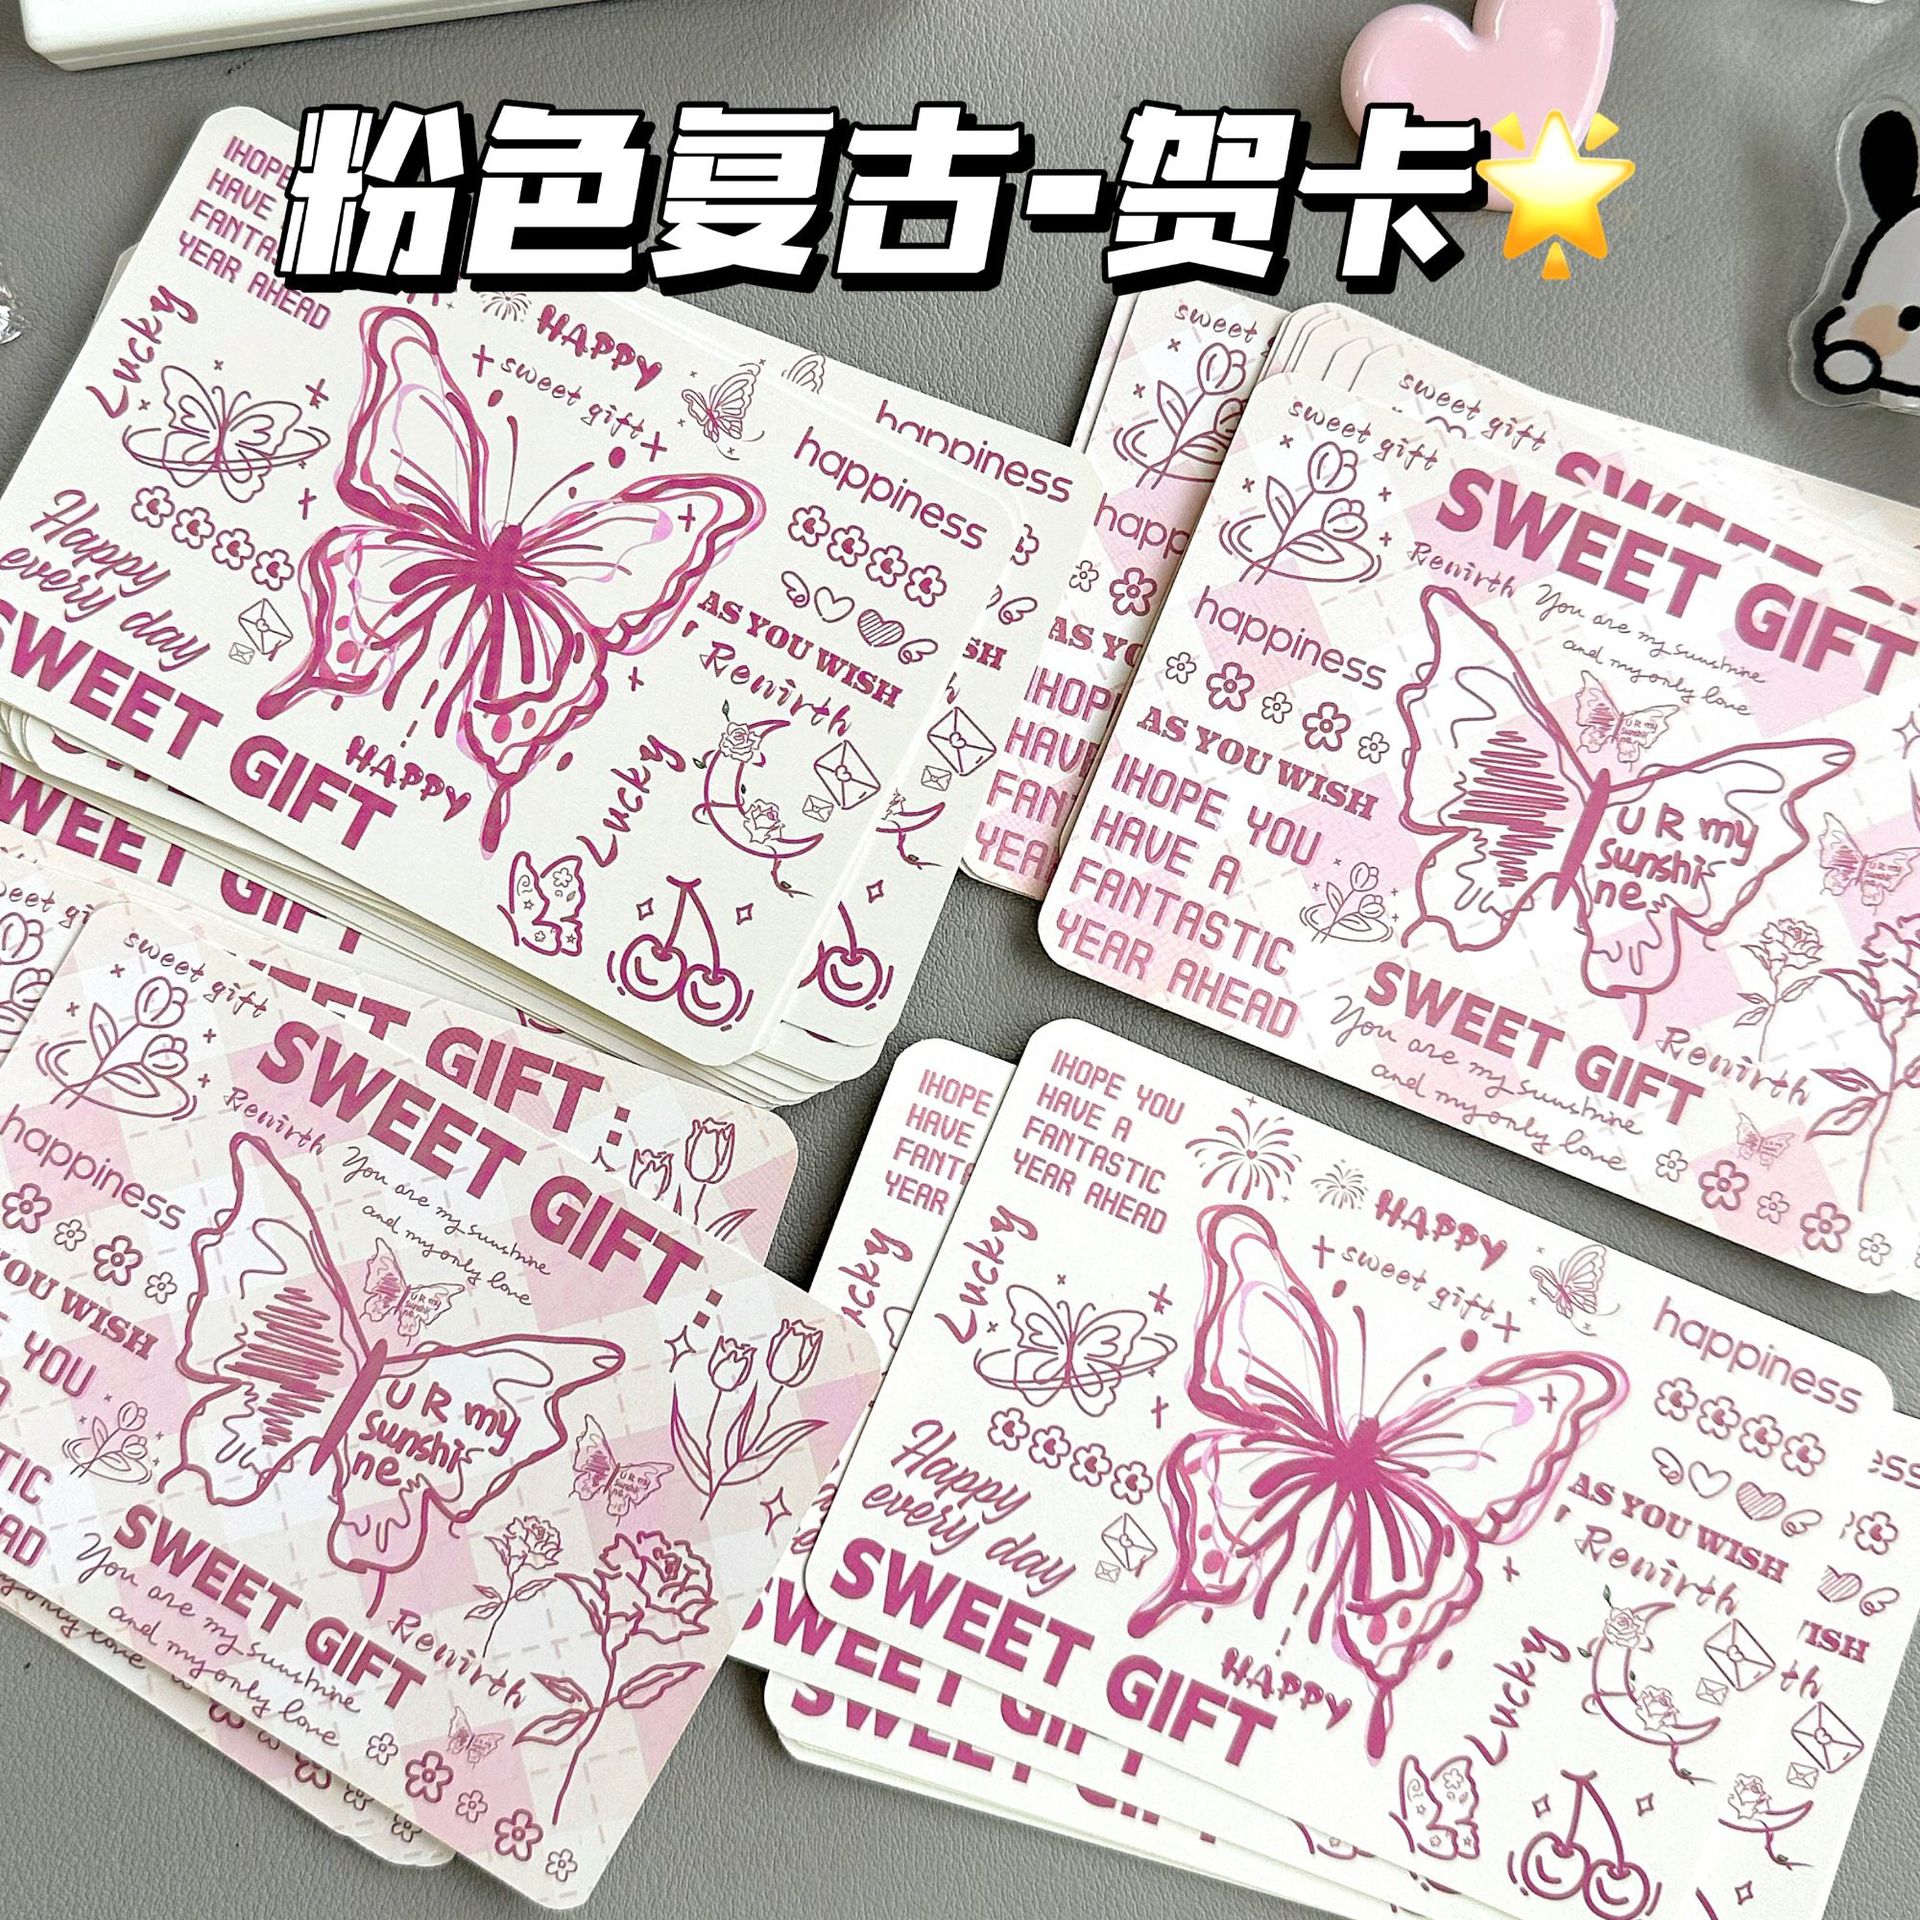 粉色复古-贺卡
IHOPE
HAVE
FANTA
YEAR AHEAD
Lucky
HAPPY
sweet gift
happiness
happiness
Happy
every day
SWEET GIFT
AS YOU WISH
Renirth
HAPPY
Lucky
sweet
happ
AS YO
IHOP
HAVE
FAN
YEA
sweet gift
sweet gift
SWEET GIFT
Renirth
You are my sunshine
and my only love
happiness
AS YOU WISH
IHOPE YOU
HAVE A
FANTASTIC
YEAR AHEAD
U R my
sunshi
ne
SWEET GIFT
You are my sunshine
and my only love
Renirth
sweet gift
SWEET GIFT:
Renirth
You are my sunshine
and my only love
happiness
YOU WISH
YOU
TIC
AD
U R my
sunshi
ne
SWEET GIFT
You are my sunshine
and my only love
Renirth
IHOPE
HAVE
FANTA
YEAR
ucky
IHOPE YOU
HAVE A
FANTASTIC
YEAR AHEAD
Lucky
HAPPY
sweet gift
happiness
Happy
every day
SWEET GIFT
AS YOU WISH
Renirth
HAPPY
Lucky